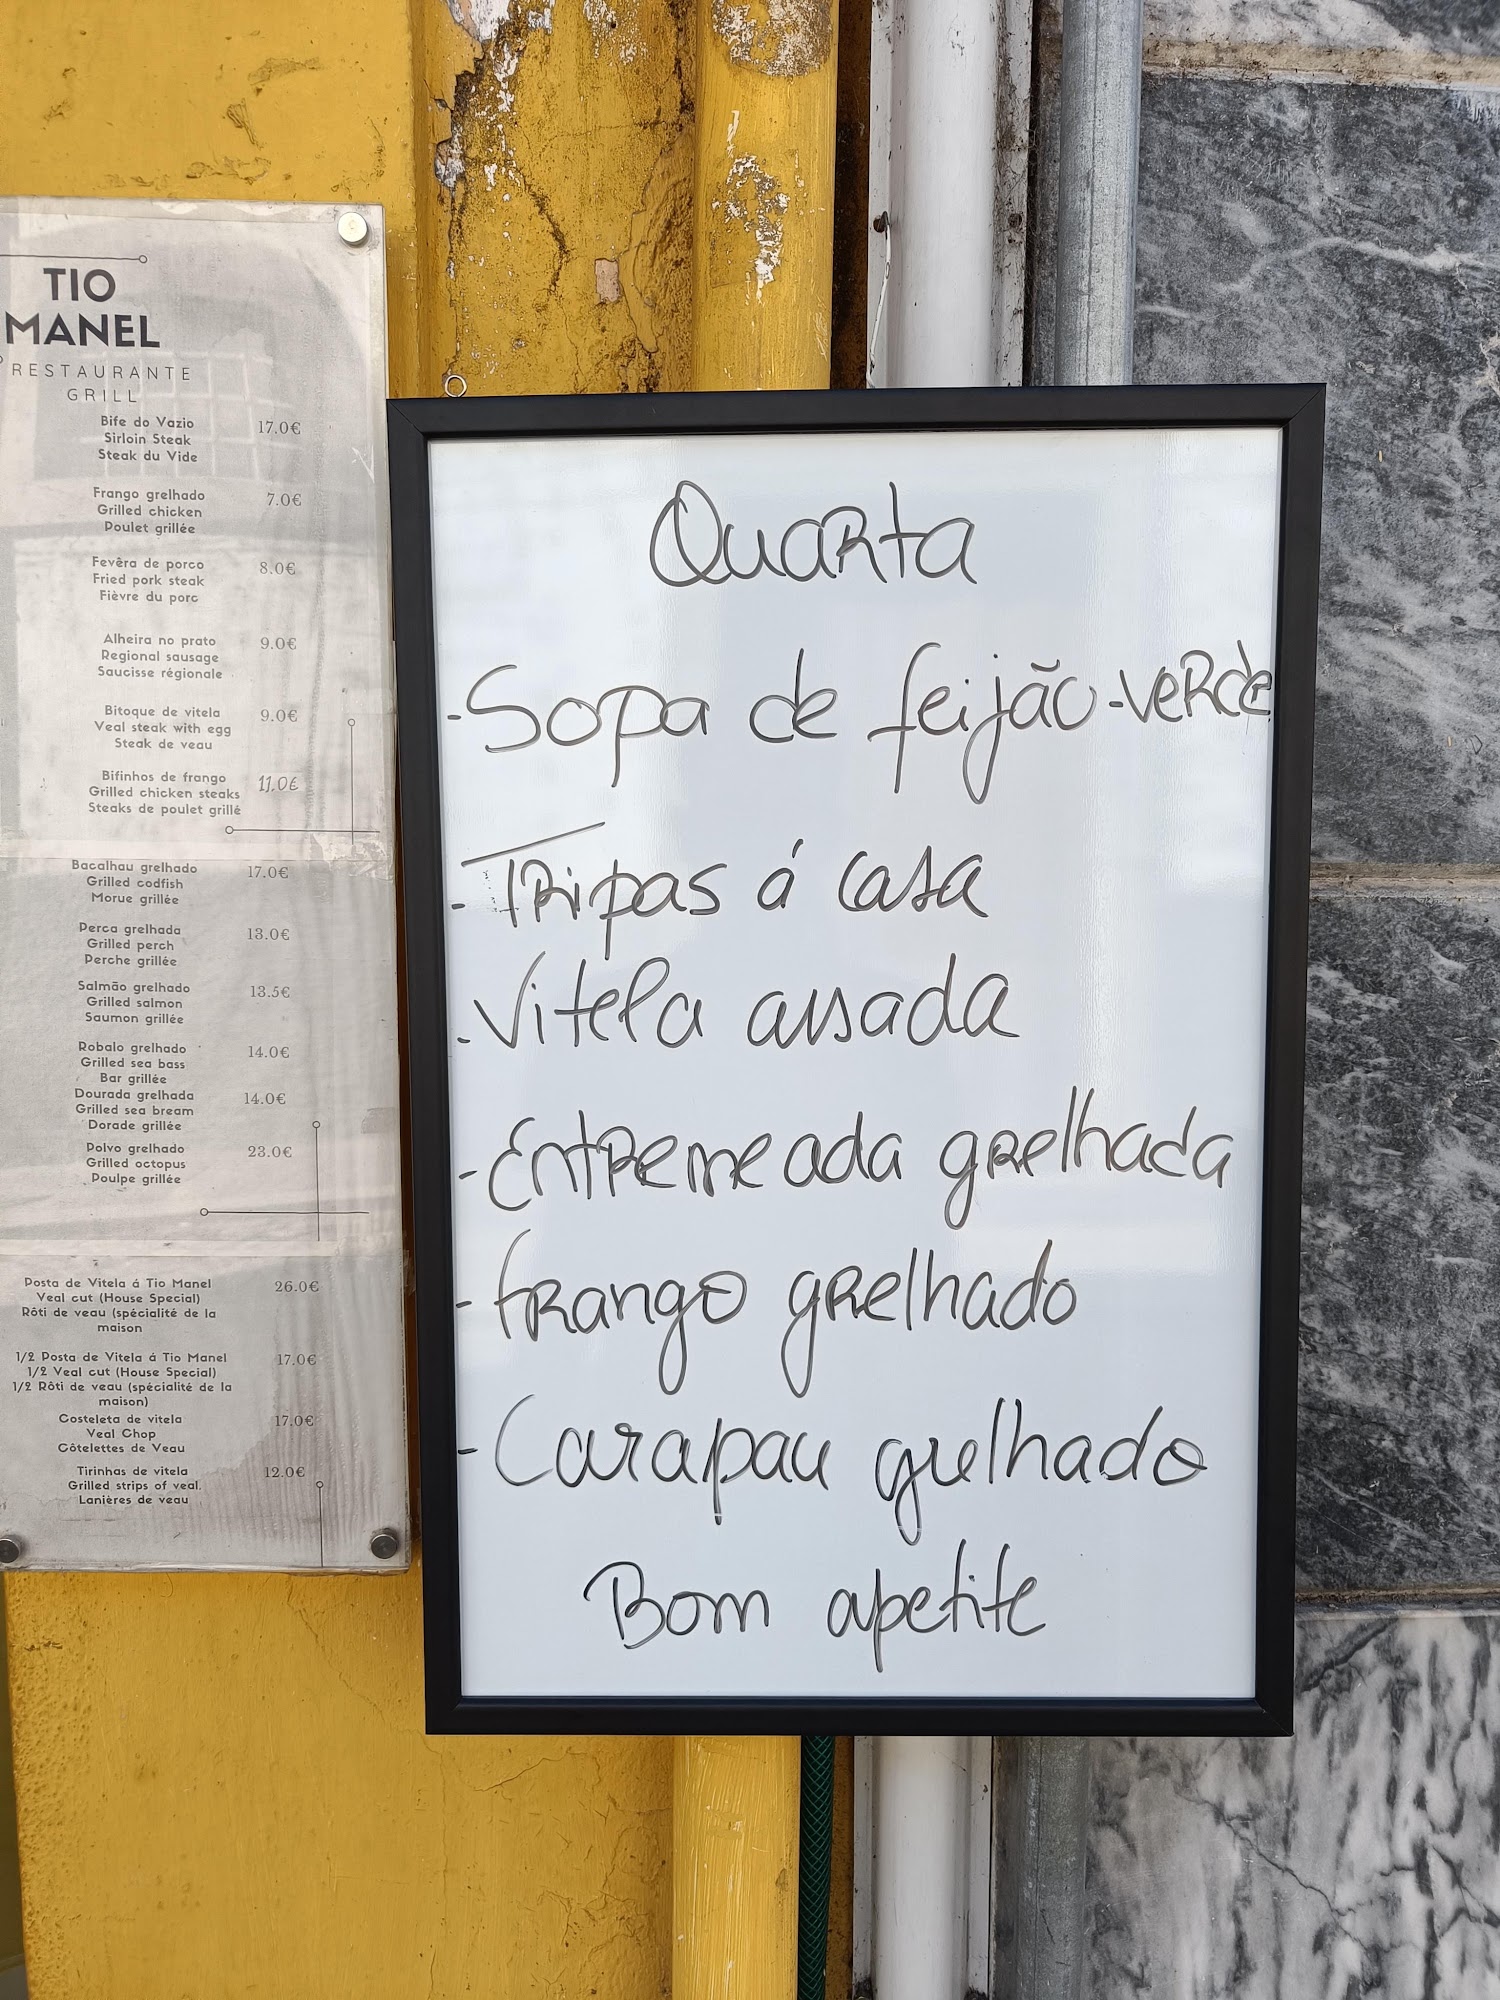 TIO
MANEL
RESTAURANTE
GRILL
Bife do Vazio 17.0€
Sirloin Steak
Steak du Vide
Frango grelhado 7.0€
Grilled chicken
Poulet grillée
Fevêra de porco 8.0€
Fried pork steak
Fièvre du porc
Alheira no prato 9.0€
Regional sausage
Saucisse régionale
Bitoque de vitela 9.0€
Veal steak with egg
Steak de veau
Bifinhos de frango 11.0€
Grilled chicken steaks
Steaks de poulet grillé
Bacalhau grelhado 17.0€
Grilled codfish
Morue grillée
Perca grelhada 13.0€
Grilled perch
Perche grillée
Salmão grelhado 13.5€
Grilled salmon
Saumon grillée
Robalo grelhado 14.0€
Grilled sea bass
Bar grillée
Dourada grelhada 14.0€
Grilled sea bream
Dorade grillée
Polvo grelhado 23.0€
Grilled octopus
Poulpe grillée
Posta de Vitela á Tio Manel 26.0€
Veal cut (House Special)
Rôti de veau (spécialité de la
maison
1/2 Posta de Vitela á Tio Manel 17.0€
1/2 Veal cut (House Special)
1/2 Rôti de veau (spécialité de la
maison)
Costeleta de vitela 17.0€
Veal Chop
Côtelettes de Veau
Tirinhas de vitela 12.0€
Grilled strips of veal.
Lanières de veau
Quarta
-Sopa de feijão-verde
-Tripas á casa
-Vitela assada
-Entremeada grelhada
-frango grelhado
-Carapau grelhado
Bom apetite